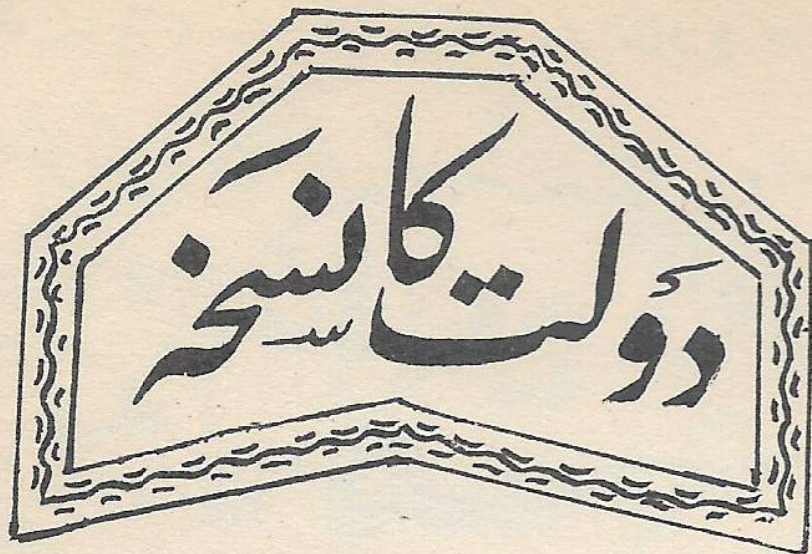 دولت کا نسخہ